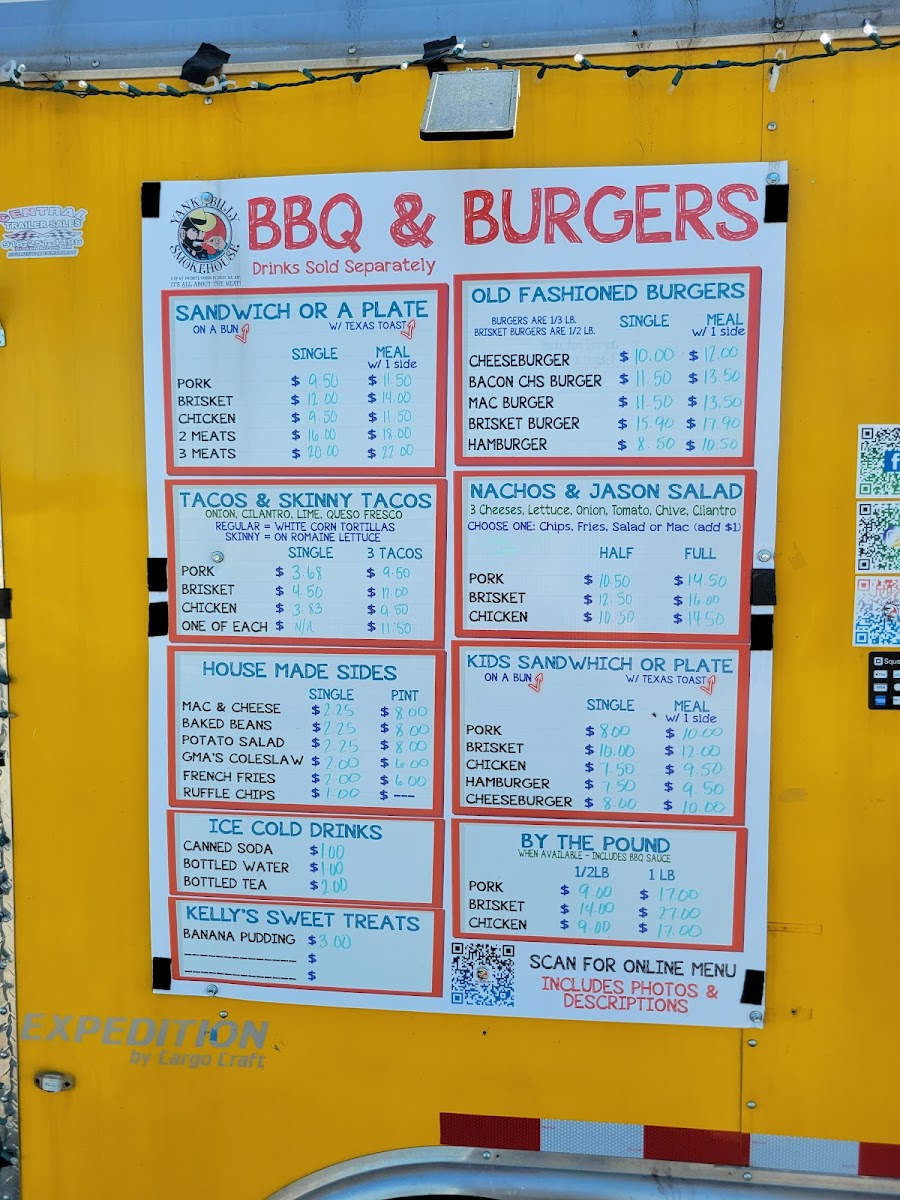 CENTRAL
TRAILER SALES
YANK & BILLY
SMOKEHOUSE
IT'S ALL ABOUT THE MEAT!
BBQ & BURGERS
Drinks Sold Separately
SANDWICH OR A PLATE
ON A BUN W/ TEXAS TOAST
SINGLE MEAL
w/ 1 side
PORK $ 9.50 $ 11.50
BRISKET $ 12.00 $ 14.00
CHICKEN $ 9.50 $ 11.50
2 MEATS $ 16.00 $ 18.00
3 MEATS $ 20.00 $ 22.00
OLD FASHIONED BURGERS
BURGERS ARE 1/3 LB.
BRISKET BURGERS ARE 1/2 LB.
SINGLE MEAL
w/ 1 side
CHEESEBURGER $ 10.00 $ 12.00
BACON CHS BURGER $ 11.50 $ 13.50
MAC BURGER $ 11.50 $ 13.50
BRISKET BURGER $ 15.90 $ 17.90
HAMBURGER $ 8.50 $ 10.50
TACOS & SKINNY TACOS
ONION, CILANTRO, LIME, QUESO FRESCO
REGULAR = WHITE CORN TORTILLAS
SKINNY = ON ROMAINE LETTUCE
SINGLE 3 TACOS
PORK $ 3.68 $ 9.50
BRISKET $ 4.50 $ 12.00
CHICKEN $ 3.83 $ 9.50
ONE OF EACH $ N/A $ 11.50
NACHOS & JASON SALAD
3 Cheeses, Lettuce, Onion, Tomato, Chive, Cilantro
CHOOSE ONE: Chips, Fries, Salad or Mac (add $1)
HALF FULL
PORK $ 10.50 $ 14.50
BRISKET $ 12.50 $ 16.00
CHICKEN $ 10.50 $ 14.50
HOUSE MADE SIDES
SINGLE PINT
MAC & CHEESE $ 2.25 $ 8.00
BAKED BEANS $ 2.25 $ 8.00
POTATO SALAD $ 2.25 $ 8.00
GMA'S COLESLAW $ 2.00 $ 6.00
FRENCH FRIES $ 2.00 $ 6.00
RUFFLE CHIPS $ 1.00 $ ---
KIDS SANDWHICH OR PLATE
ON A BUN W/ TEXAS TOAST
SINGLE MEAL
w/ 1 side
PORK $ 8.00 $ 10.00
BRISKET $ 10.00 $ 12.00
CHICKEN $ 7.50 $ 9.50
HAMBURGER $ 7.50 $ 9.50
CHEESEBURGER $ 8.00 $ 10.00
ICE COLD DRINKS
CANNED SODA $ 1.00
BOTTLED WATER $ 1.00
BOTTLED TEA $ 2.00
BY THE POUND
WHEN AVAILABLE - INCLUDES BBQ SAUCE
1/2LB 1 LB
PORK $ 9.00 $ 17.00
BRISKET $ 14.00 $ 27.00
CHICKEN $ 9.00 $ 17.00
KELLY'S SWEET TREATS
BANANA PUDDING $ 3.00
$
$
SCAN FOR ONLINE MENU
INCLUDES PHOTOS &
DESCRIPTIONS
EXPEDITION
by Cargo Craft